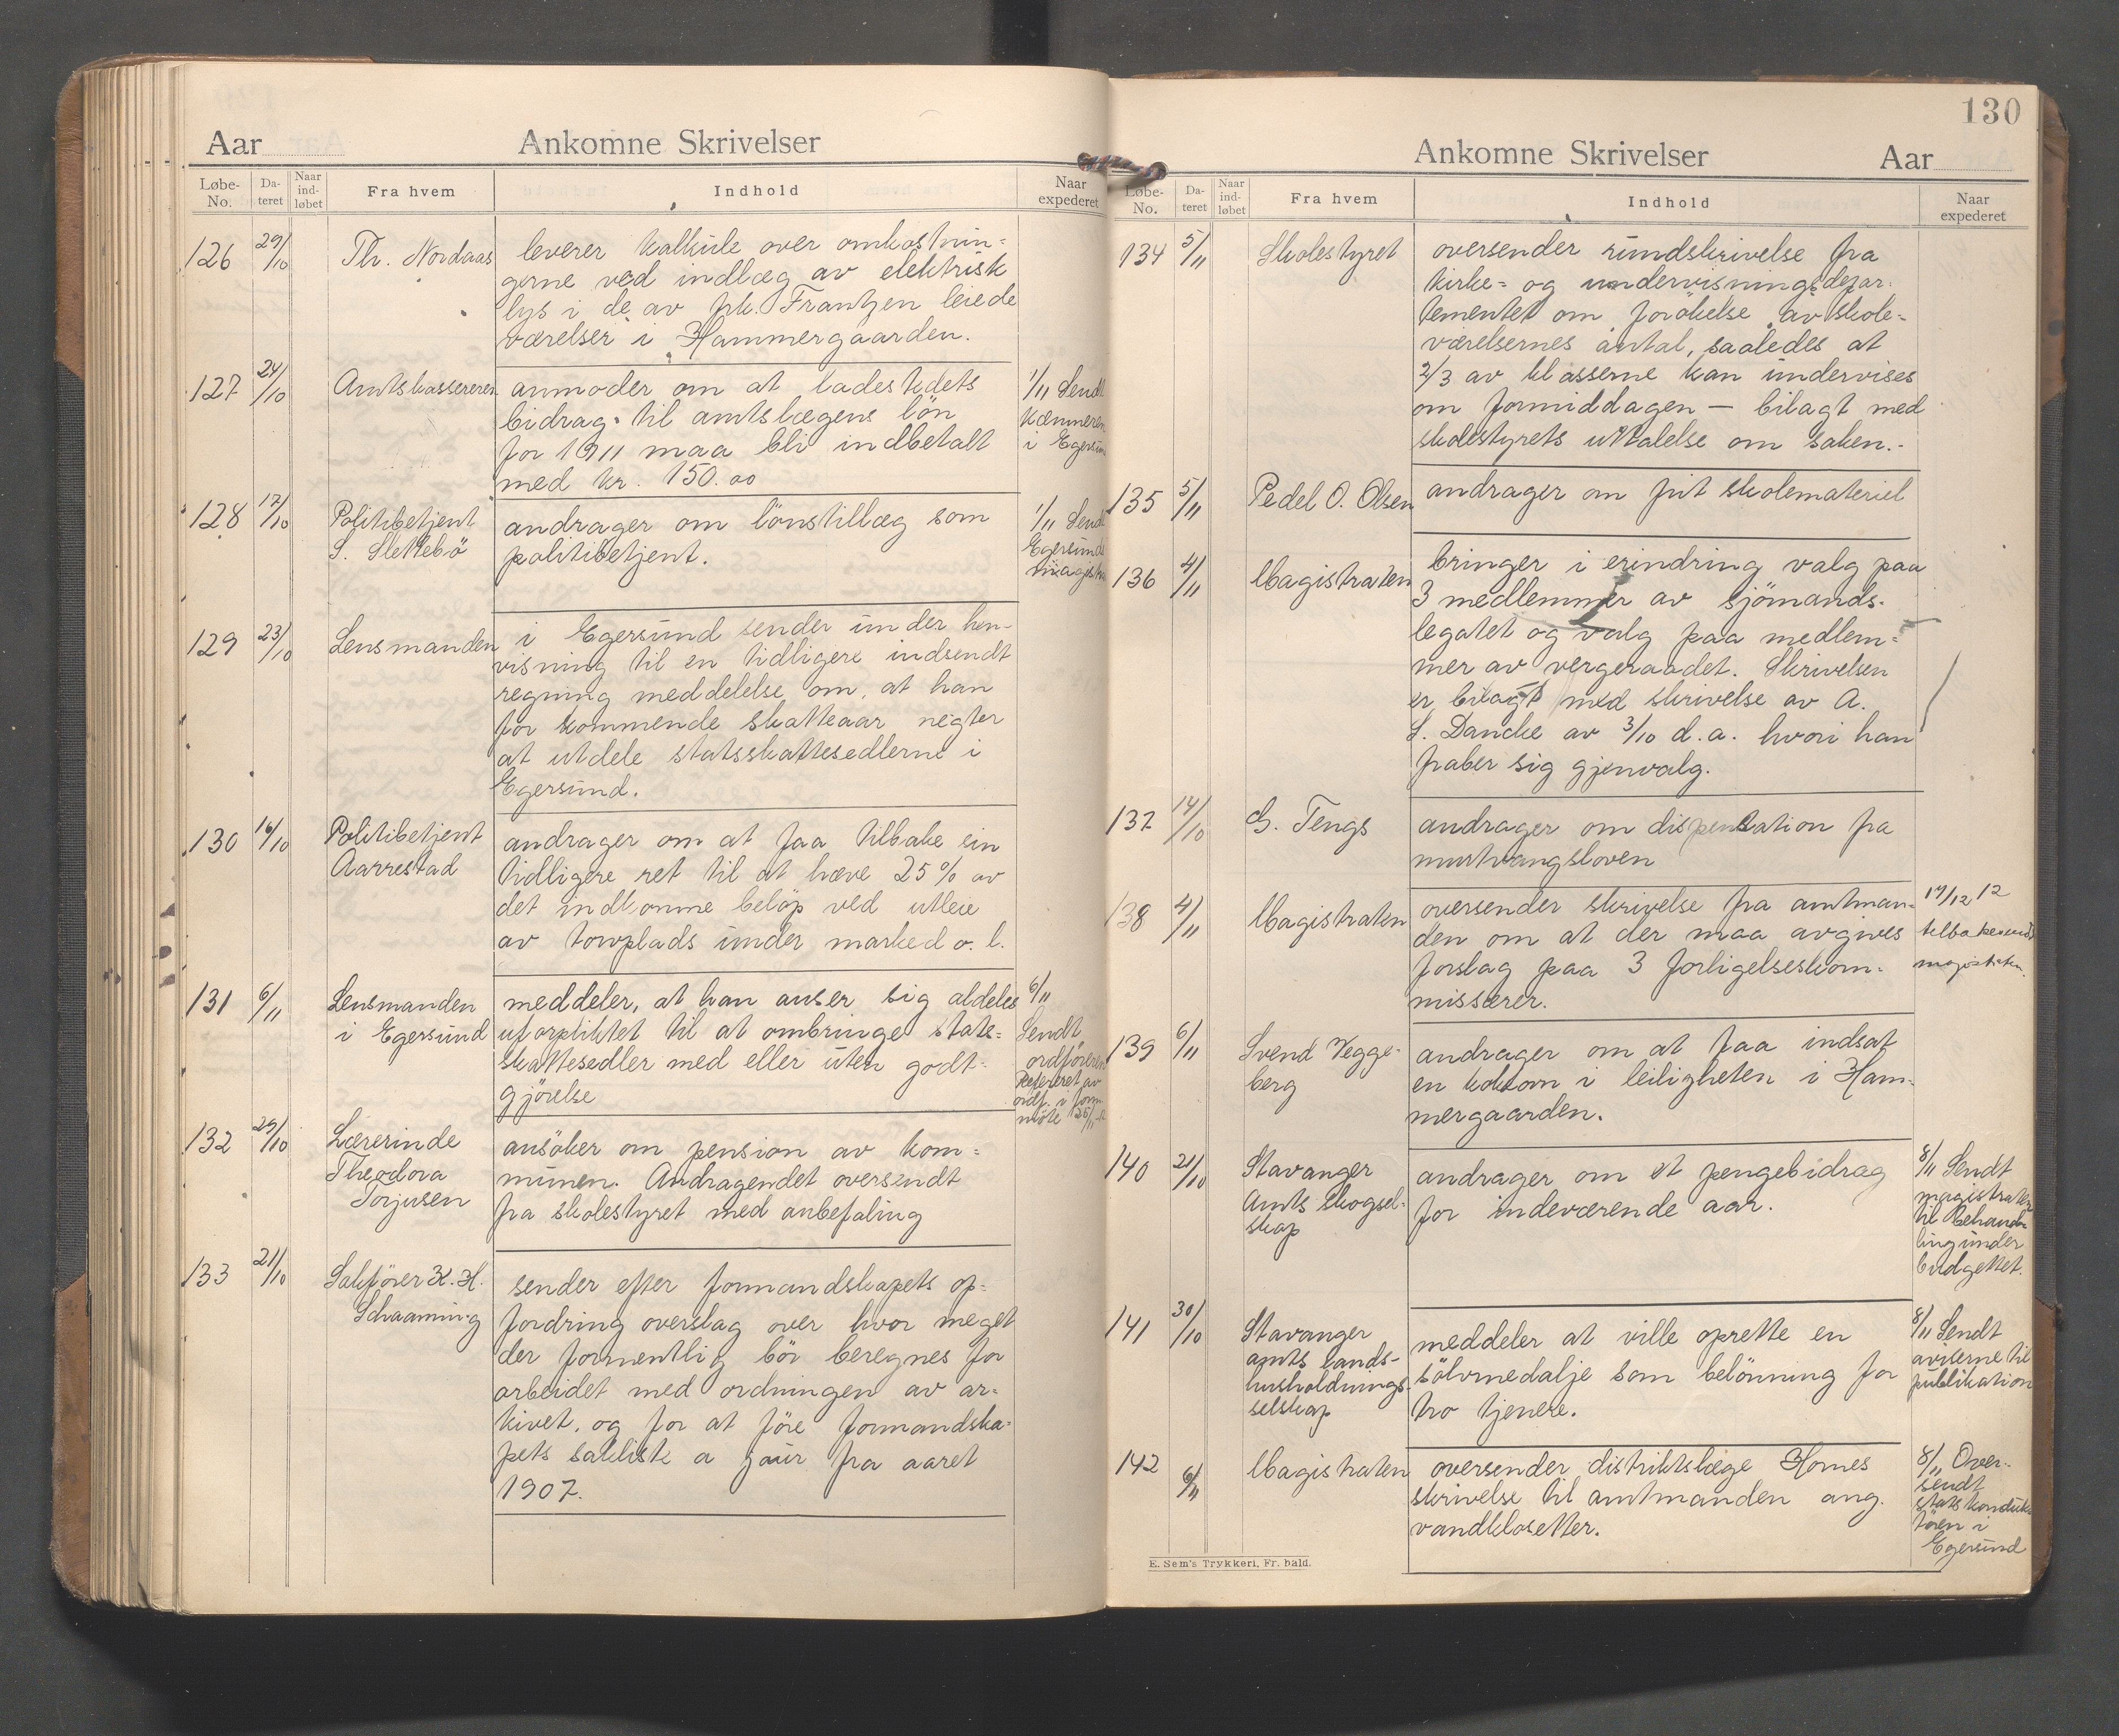 Aar
Ankomne Skrivelser
Løbe-No. Dateret Naar indløbet Fra hvem Indhold Naar expederet
126 29/10 Th. Nordaas leverer kalkule over omkostnin-
gerne ved indlæg av elektrisk
lys i de av frk. Frantzen leiede
værelser i Hammergaarden.
127 24/10 Amtskassereren anmoder om at ladestedets
bidrag til amtslægens lön
for 1911 maa bli indbetalt
med kr. 150.00
1/11 Sendt
Kæmneren
i Egersund
128 17/10 Politibetjent
S. Slettebö
andrager om lönstillæg som
politibetjent.
1/11 Sendt
Egersunds
magistrat
129 23/10 Lensmanden i Egersund sender under hen-
visning til en tidligere indsendt
regning meddelelse om, at han
for kommende skatteaar negter
at utdele statsskattesedlerne i
Egersund.
130 16/10 Politibetjent
Aarrestad
andrager om at faa tilbake sin
tidligere ret til at hæve 25% av
det indkomne belöp ved utleie
av torvplads under marked o. l.
131 6/11 Lensmanden
i Egersund
meddeler, at han anser sig aldeles
uforpliktet til at ombringe stats-
skattesedler med eller uten godt-
gjörelse
6/11
Sendt
ordföreren
Refereret av
ordf. i form
möte 25/11
132 29/10 Lærerinde
Theodora
Torjusen
ansöker om pension av kom-
munen. Andragendet oversendt
fra skolestyret med anbefaling
133 21/10 Sakförer K. H.
Schaaming
sender efter formandskapets op-
fordring overslag over hvor meget
der formentlig bör beregnes for
arbeidet med ordningen av ar-
kivet, og for at före formandska-
pets sakliste a jour fra aaret
1907.
130
Ankomne Skrivelser
Aar
Løbe-No. Dateret Naar indløbet Fra hvem Indhold Naar expederet
134 5/11 Skolestyret oversender rundskrivelse fra
kirke- og undervisningsdepar-
tementet om forökelse av skole-
værelsernes antal, saaledes at
2/3 av klasserne kan undervises
om formiddagen — bilagt med
skolestyrets uttalelse om saken.-
135 5/11 Pedel O. Olsen andrager om frit skolemateriel
136 4/11 Magistraten bringer i erindring valg paa
3 medlemmer av sjömands-
legatet og valg paa medlem-
mer av vergeraadet. Skrivelsen
er bilagt med skrivelse av A.
S. Dancke av 3/10 d.a. hvori han
fraber sig gjenvalg.
137 14/10 G. Tengs andrager om dispensation fra
murtvangsloven
138 4/11 Magistraten oversender skrivelse fra amtman-
den om at der maa avgives
forslag paa 3 forligelseskom-
missærer.
17/12 12
tilbakesendt
magistraten.
139 6/11 Svend Vegge-
berg
andrager om at faa indsat
en kokovn i leiligheten i Ham-
mergaarden.
140 21/10 Stavanger
Amts Skogsel-
skap
andrager om et pengebidrag
for indeværende aar.
8/11 Sendt
magistraten
til behand-
ling under
budgettet.
141 30/10 Stavanger
amts lands-
husholdnings-
selskap
meddeler at ville oprette en
sölvmedalje som belönning for
tro tjenere.
8/11 Sendt
aviserne til
publikation
142 6/11 Magistraten oversender distriktslæge Hornes
skrivelse til amtmanden ang.
vandklosetter.
8/11 Over-
sendt
statskonduk-
tören i
Egersund
E. Sem's Trykkeri, Fr. hald.